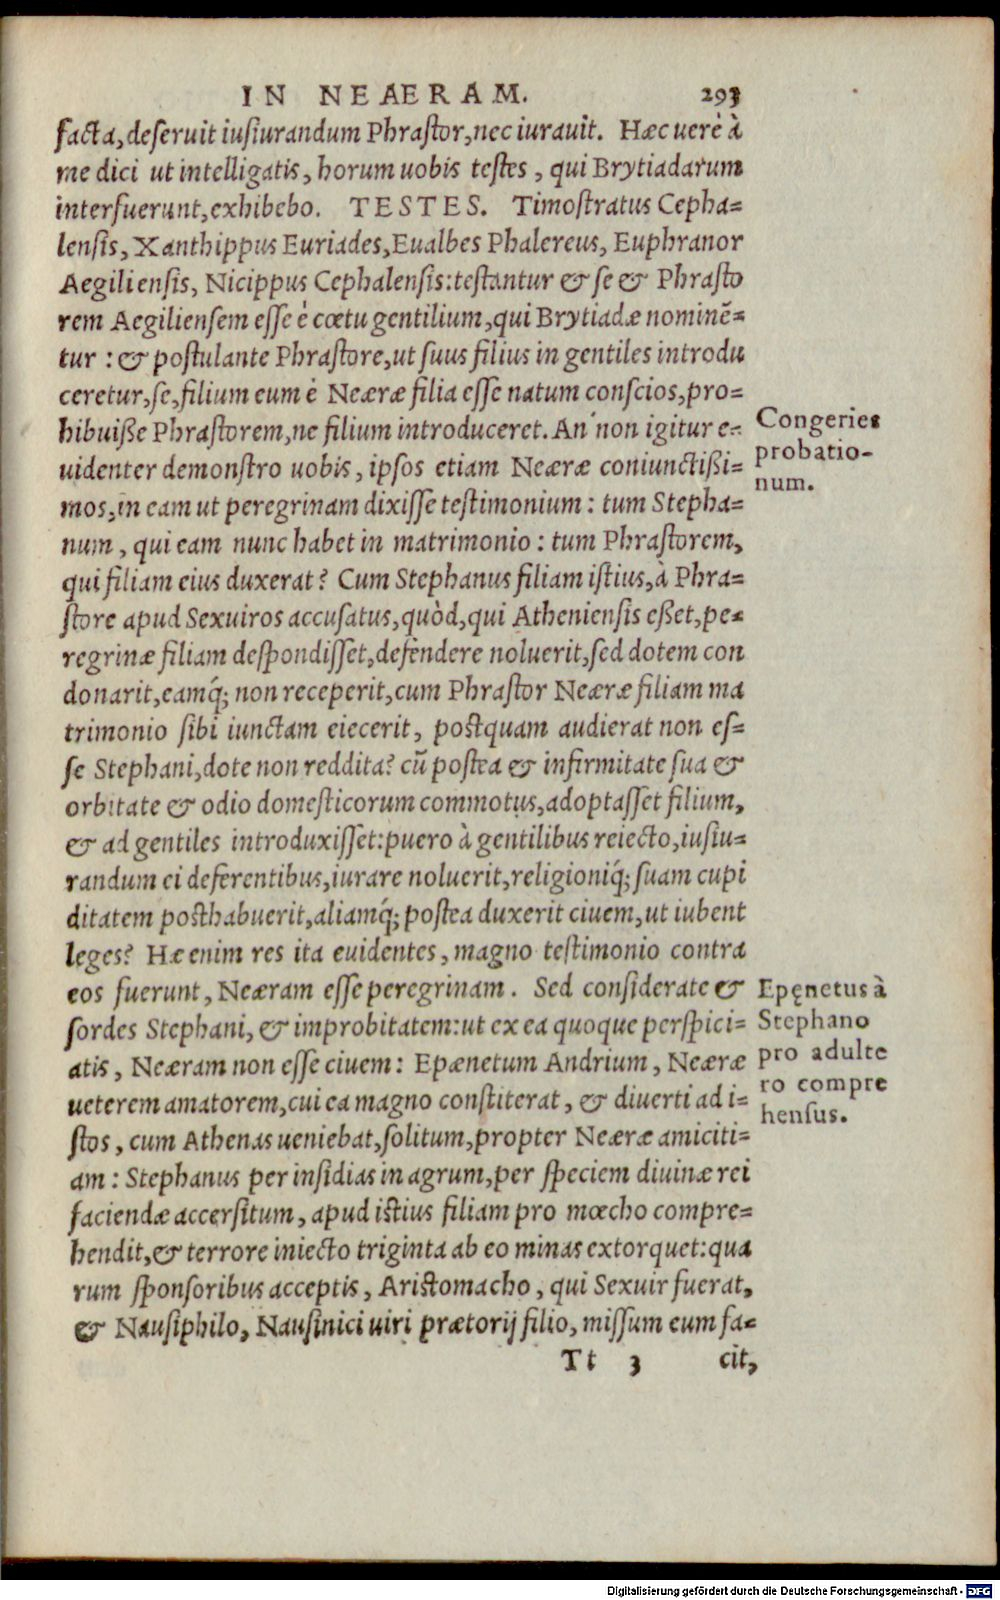 IN NEAERAM. 293
facta, deseruit iusiurandum Phrastor, nec iurauit. Hæc uerè à
me dici ut intelligatis, horum uobis testes, qui Brytiadarum
interfuerunt, exhibebo. TESTES. Timostratus Cepha=
lensis, Xanthippus Euriades, Eualbes Phalereus, Euphranor
Aegiliensis, Nicippus Cephalensis: testantur & se & Phrasto
rem Aegiliensem esse è cœtu gentilium, qui Brytiadæ nominē=
tur: & postulante Phrastore, ut suus filius in gentiles introdu
ceretur, se, filium eum è Neæræ filia esse natum conscios, pro=
hibuiße Phrastorem, ne filium introduceret. An non igitur e=
uidenter demonstro uobis, ipsos etiam Neæræ coniunctißi=
mos, in eam ut peregrinam dixisse testimonium: tum Stepha=
num, qui eam nunc habet in matrimonio: tum Phrastorem,
qui filiam eius duxerat? Cum Stephanus filiam istius, à Phra=
store apud Sexuiros accusatus, quòd, qui Atheniensis eßet, pe=
regrinæ filiam despondisset, defendere noluerit, sed dotem con
donarit, eamq́; non receperit, cum Phrastor Neæræ filiam ma
trimonio sibi iunctam eiecerit, postquam audierat non es=
se Stephani, dote non reddita? cū postea & infirmitate sua &
orbitate & odio domesticorum commotus, adoptasset filium,
& ad gentiles introduxisset: puero à gentilibus reiecto, iusiu=
randum ei deferentibus, iurare noluerit, religioniq́; suam cupi
ditatem posthabuerit, aliamq́; postea duxerit ciuem, ut iubent
leges? Hæ enim res ita euidentes, magno testimonio contra
eos fuerunt, Neæram esse peregrinam. Sed considerate &
sordes Stephani, & improbitatem: ut ex ea quoque perspici=
atis, Neæram non esse ciuem: Epænetum Andrium, Neæræ
ueterem amatorem, cui ea magno constiterat, & diuerti ad i=
stos, cum Athenas ueniebat, solitum, propter Neæræ amiciti=
am: Stephanus per insidias in agrum, per speciem diuinæ rei
faciendæ accersitum, apud istius filiam pro mœcho compre=
hendit, & terrore iniecto triginta ab eo minas extorquet: qua
rum sponsoribus acceptis, Aristomacho, qui Sexuir fuerat,
& Nausiphilo, Nausinici uiri prætorij filio, missum eum fa=
Tt 3 cit,
Congeries
probatio-
num.
Epęnetus à
Stephano
pro adulte
ro compre
hensus.
Digitalisierung gefördert durch die Deutsche Forschungsgemeinschaft - DFG